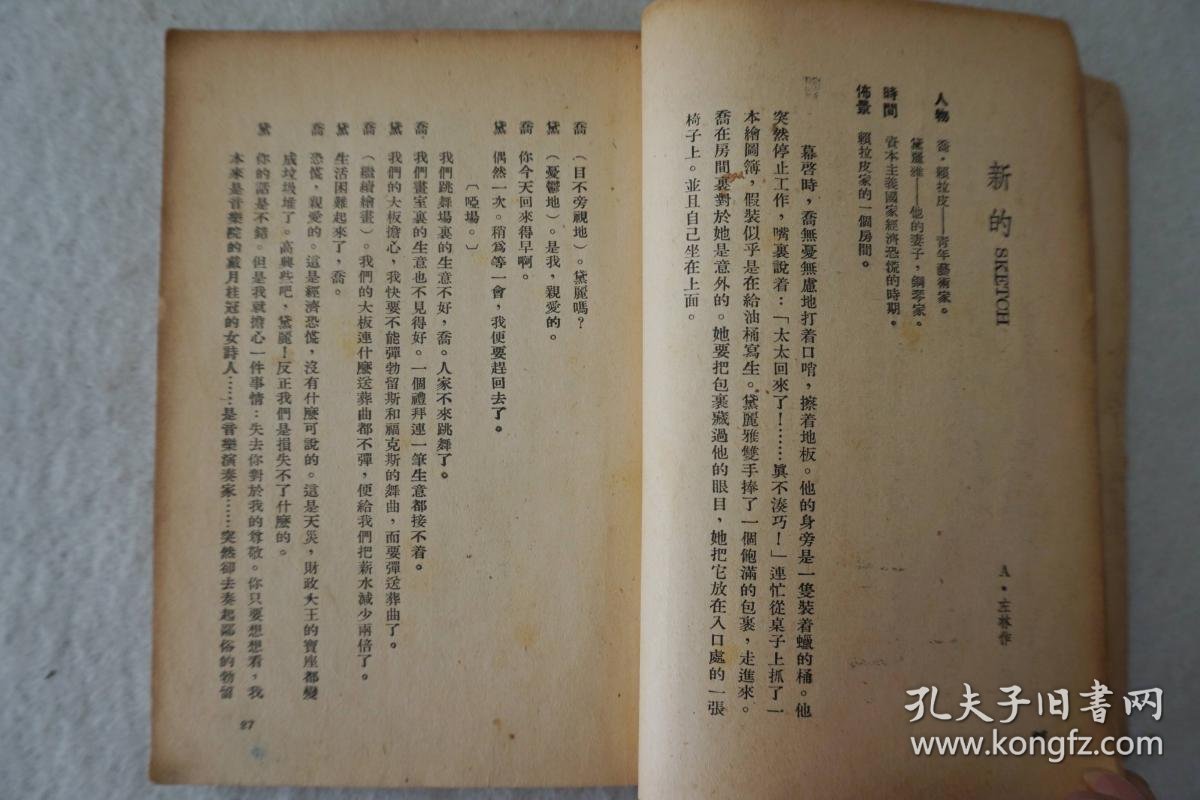 新的 SKETCH
A·左林作
人物　喬·賴拉皮——青年藝術家。
黛麗雅——他的妻子，鋼琴家。
時間　資本主義國家經濟恐慌的時期。
佈景　賴拉皮家的一個房間。
幕啓時，喬無憂無慮地打着口哨，擦着地板。他的身旁是一隻裝着蠟的桶。他
突然停止工作，嘴裏說着：「太太回來了！……眞不湊巧！」連忙從桌子上抓了一
本繪圖簿，假裝似乎是在給油桶寫生。黛麗雅雙手捧了一個飽滿的包裹，走進來。
喬在房間裏對於她是意外的。她要把包裹藏過他的眼目，她把它放在入口處的一張
椅子上。並且自己坐在上面。
喬　（目不旁視地）。黛麗嗎？
黛　（憂鬱地）。是我，親愛的。
喬　你今天回來得早啊。
黛　偶然一次。稍爲等一會，我便要趕回去了。
〔啞場。〕
我們跳舞場裏的生意不好，喬。人家不來跳舞了。
喬　我們畫室裏的生意也不見得好。一個禮拜連一筆生意都接不着。
黛　我們的大板擔心，我快要不能彈勃留斯和福克斯的舞曲，而要彈送葬曲了。
喬　（繼續繪畫）。我們的大板連什麼送葬曲都不彈，便給我們把薪水減少兩倍了。
黛　生活困難起來了，喬。
喬　恐慌，親愛的。這是經濟恐慌，沒有什麼可說的。這是天災，財政大王的寶座都變
成垃圾堆了。高興些吧，黛麗！反正我們是損失不了什麼的。
黛　你的話是不錯。但是我就擔心一件事情：失去你對於我的尊敬。你只要想想看，我
本來是音樂院的戴月桂冠的女詩人……是音樂演奏家……突然卻去奏起鄙俗的勃留
27
孔夫子旧书网
www.kongfz.com